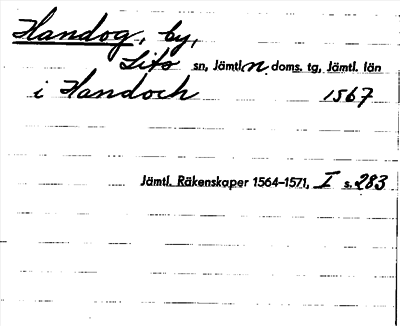 Handog, by,
Lits sn, Jämtl. n. doms. tg, Jämtl. län
i Handoch 1567
Jämtl. Räkenskaper 1564–1571, I s. 283